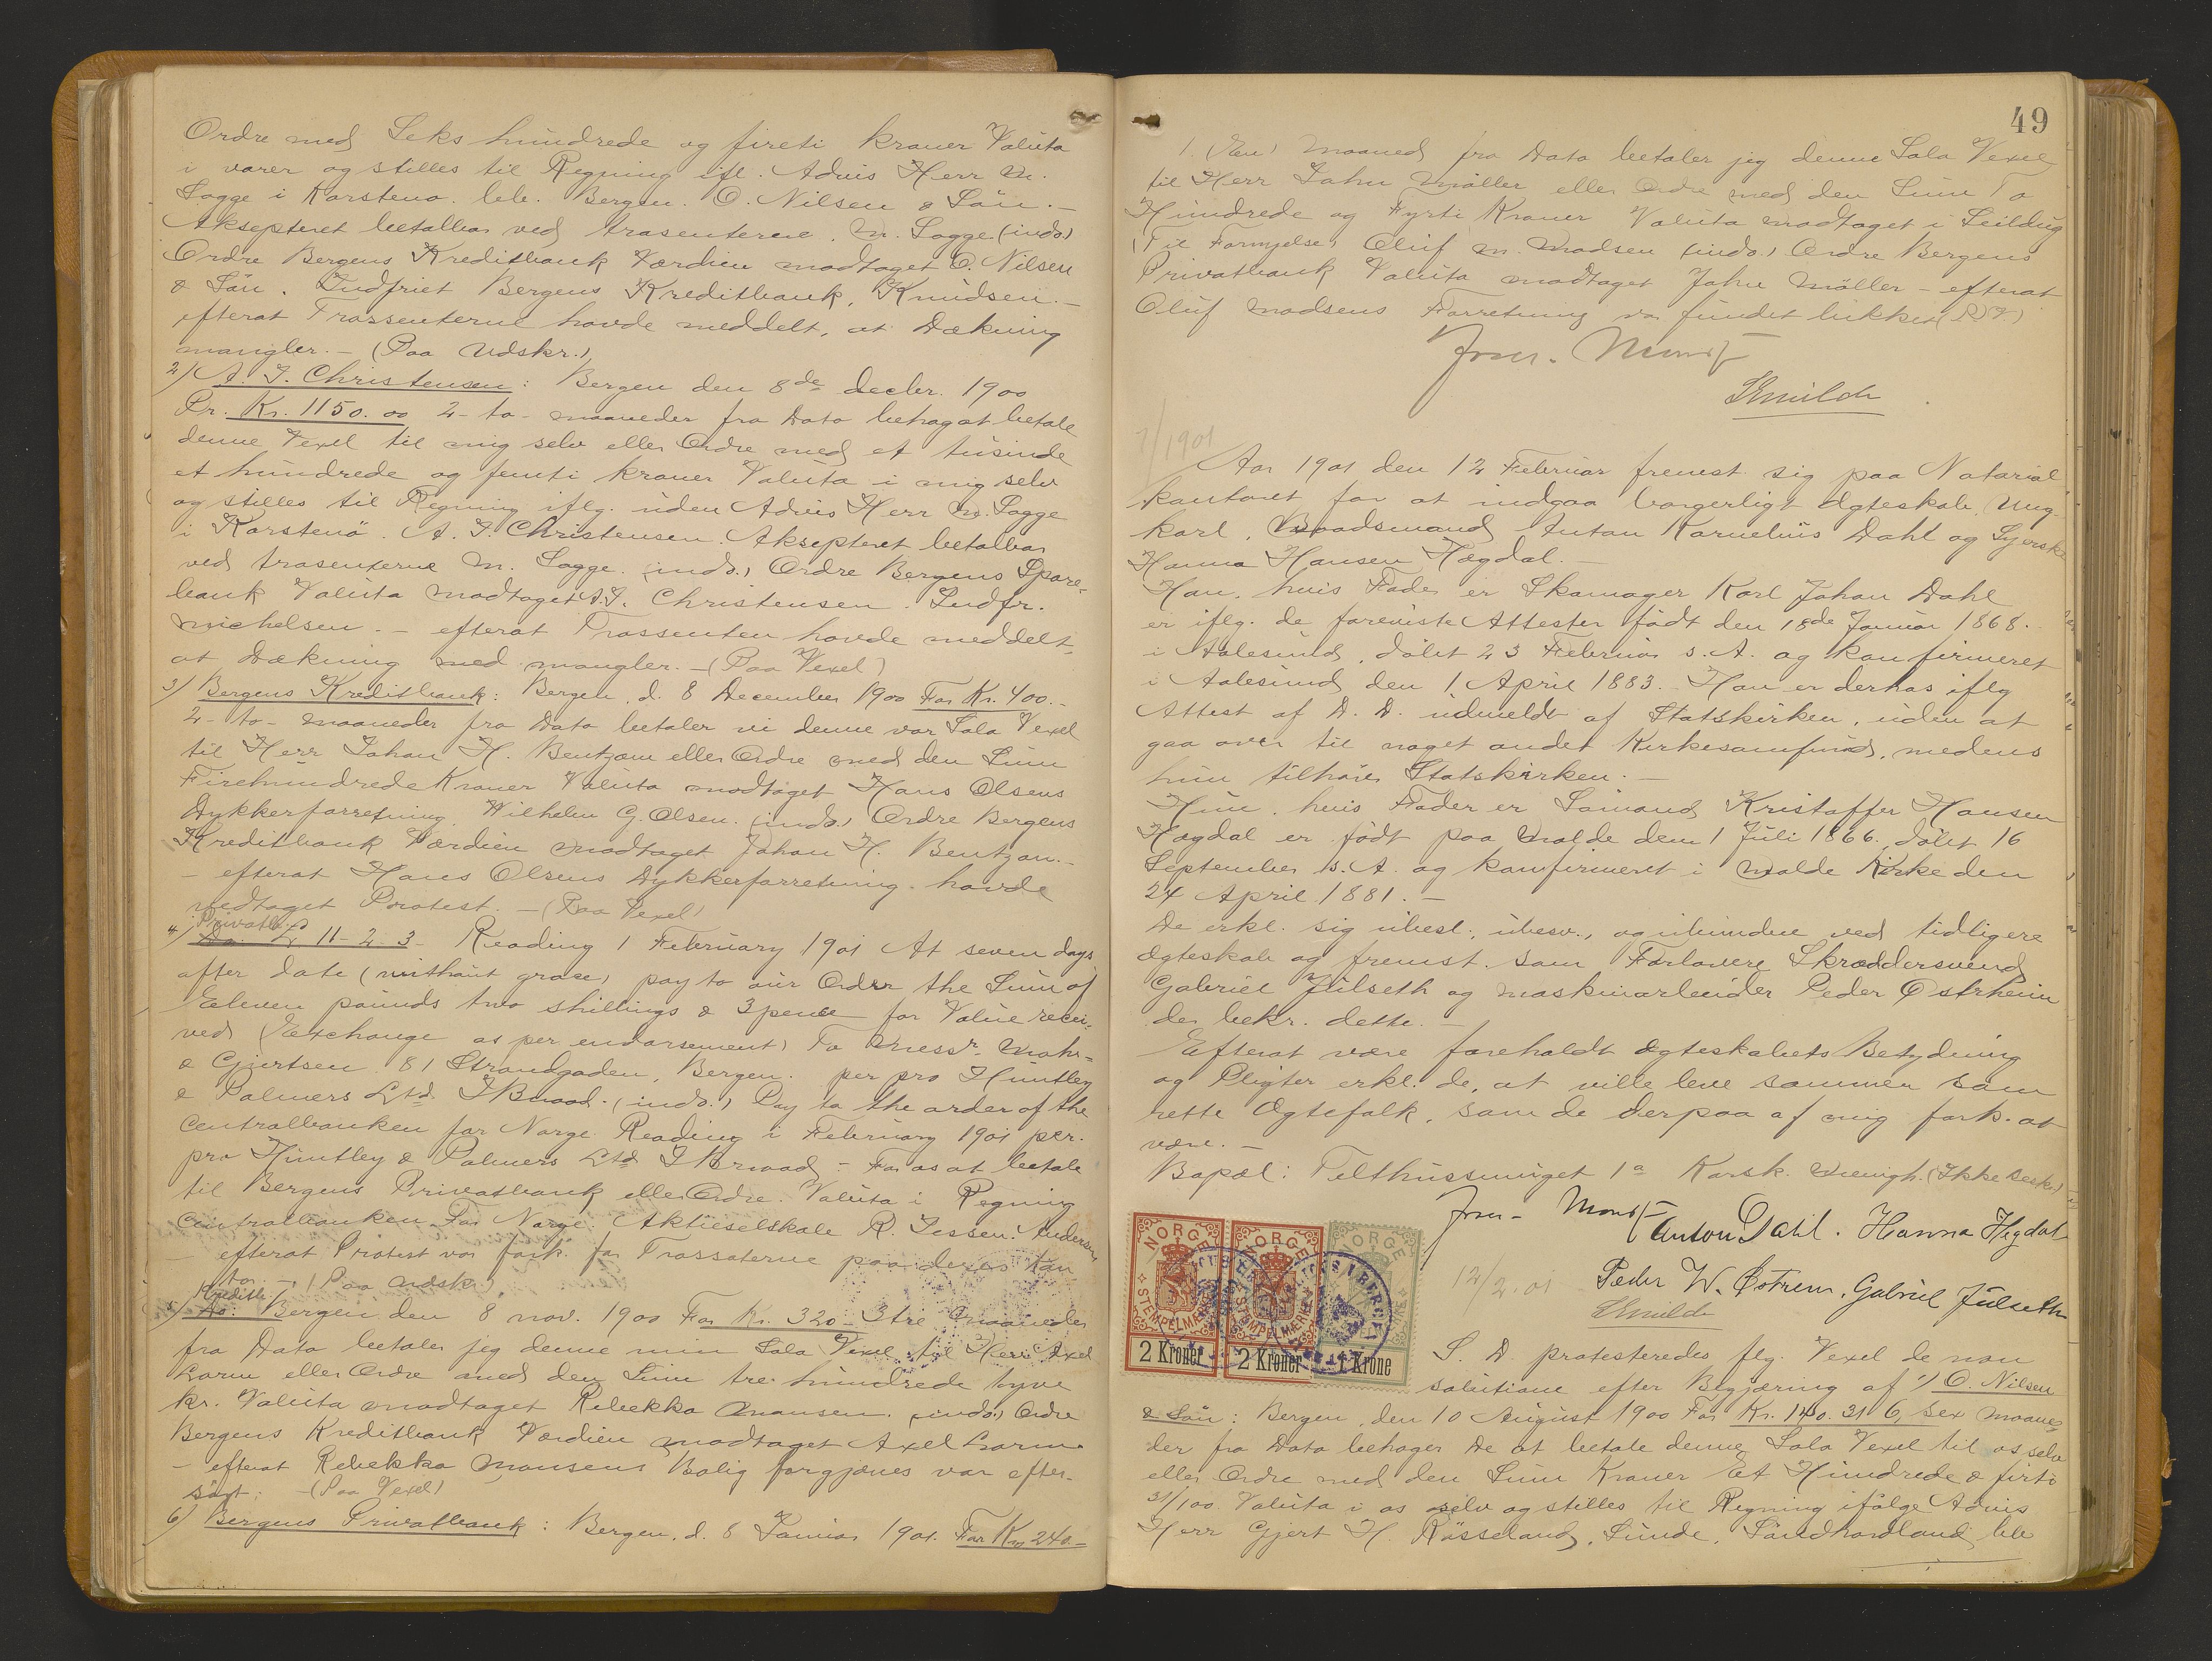 Ordre med Seks hundrede og fireti kroner Valuta
i varer og stilles til Regning ifl. Advis Herr M.
Sagge i Korstenø. bib. Bergen. O. Nilsen & Sön. –
Aksepteret betalbar ved trasenterne. M. Sagge (indo.)
Ordre Bergens Kreditbank Værdien modtaget O. Nilsen
& Sön. Indfriet Bergens Kreditbank. Knudsen. –
efterat Trassenterne havde meddelt, at Dækning
mangler. – (Paa Udskr.)
2) A. J. Christensen: Bergen den 8de decbr. 1900
Pr. Kr. 1150.00 2 - to - maaneder fra Dato behag at betale
denne Vexel til mig selv eller Ordre med et tusinde
et hundrede og femti kroner Valuta i mig selv
og stilles til Regning iflg. uden Advis Herr M. Sagge
i Korstenö. A. J. Christensen. Aksepteret betalbar
ved trasenterne M. Sagge. (indo.) Ordre Bergens Spare-
bank Valuta modtaget A. J. Christensen. Indfr.
Michelsen. – efterat Trassenten havde meddelt,
at Dækning med mangler. – (Paa Vexel)
3) Bergens Kreditbank: Bergen, d. 8 December 1900 For Kr. 400. –
2 - to - maaneder fra Dato betaler vi denne vor Sola Vexel
til Herr Johan H. Bentzon eller Ordre med den Sum
Firehundrede Kroner Valuta modtaget Hans Olsens
Dykkerforretning. Wilhelm G. Olsen. (indo.) Ordre Bergens
Kreditbank Værdien modtaget Johan H. Bentzon. –
– efterat Hans Olsens Dykkerforretning havde
vedtaget Protest. – (Paa Vexel)
Privatb.
4) Do. £ 11 - 2 . 3 - Reading 1 February 1901 At seven days
after date (without grace) pay to our Order the Sum of
Eleven pounds two shillings & 3 pence for Value recei-
ved (Exchange as per endorsement) To Messrs Mohr-
& Gjertsen 81 Strandgaden, Bergen. per pro Huntley
& Palmers Ltd. (indo.) Pay to the order of the
Centralbanken for Norge Reading 1 February 1901 per.
pro Huntley & Palmers Ltd – For os at betale
til Bergens Privatbank eller Ordre. Valuta i Regning
Centralbanken For Norge: Aktieselskab R. Jessen. Andersen
– efterat Protest var fork. for Trassaterne paa deres Kon-
tor. – (Paa Udskr.)
Kreditb.
5) Do. Bergen den 8 nov. 1900 For Kr. 320 - 3 tre Maaneder
fra Dato betaler jeg denne min Sola Vexel til Herr Axel
Lorm eller Ordre med den Sum tre hundrede tyve
kr. Valuta modtaget Rebekka Monsen. (indo.) Ordre
Bergens Kreditbank Værdien modtaget Axel Lorm
– efterat Rebekka Monsens Bolig forgjæves var efter-
sögt: – (Paa Vexel)
6) Bergens Privatbank: Bergen, d. 8 Januar 1901. For Kr 240. –
49
1 (En) Maaned fra Dato betaler jeg denne Sola Vexel
til Herr John Möller eller Ordre med den Sum To
Hundrede og Fyrti Kroner Valuta modtaget i Seildug
(Til Fornyelse) Oluf M. Madsen (indo.) Ordre Bergens
Privatbank Valuta modtaget John Möller – efterat
Oluf Madsens Forretning var fundet lukket (P.V)
7/1901
Aar 1901 den 12 Februar fremst. sig paa Notarial
kontoret for at indgaa borgerligt Ægteskab, Ung-
karl, Baadsmand Anton Kornelius Dahl og Syerske
Hanna Hansen Hægdal. –
Han, hvis Fader er Skomager Karl Johan Dahl
er iflg. de foreviste Attester födt den 18de Januar 1868.
i Aalesund, döbt 23 Februar s. A. og konfirmeret
i Aalesund den 1 April 1883. Han er derhos iflg
Attest af D. D. udmeldt af Statskirken, uden at
gaa over til noget andet Kirkesamfund, medens
hun tilhörer Statskirken. –
Hun, hvis Fader er Sömand Kristoffer Hansen
Hægdal er födt paa Molde den 1 Juli 1866, döbt 16
September s. A. og konfirmeret i Molde Kirke den
24 April 1881. –
De erkl. sig ubesl., ubesv., og uhindre ved tidligere
Ægteskab og fremst. som Forlovere Skræddersvend
Gabriel Julseth og maskinarbeider Peder Østrheim
der bekr. dette. –
Efterat være foreholdt Ægteskabets Betydning
og Pligter erkl. de, at ville leve sammen som
rette Ægtefolk, som de derpaa af mig fork. at
være. –
Bopæl: Telthussmuget 1a Korsk. Menigh. (Ikke beskr.)
Anton Dahl. Hanna Hegdal
12/2.01 Peder W. Østrem, Gabriel Julseth
NORGE STEMPELMÆRKE 2 Kroner
NORGE STEMPELMÆRKE 2 Kroner
NORGE 1 Krone
S. D. protesteredes flg Vexel de non
solutione efter Begjæring af 1) O. Nilsen
& Sön: Bergen, den 10 August 1900 For Kr. 140.31 6, sex Maane-
der fra Dato behager De at betale denne Sola Vexel til os selv
eller Ordre med den Sum Kroner Et Hundrede & firti
31/100 Valuta i os selv og stilles til Regning ifølge Advis
Herr Gjert H. Røsseland, Sunde, Söndhordland bib